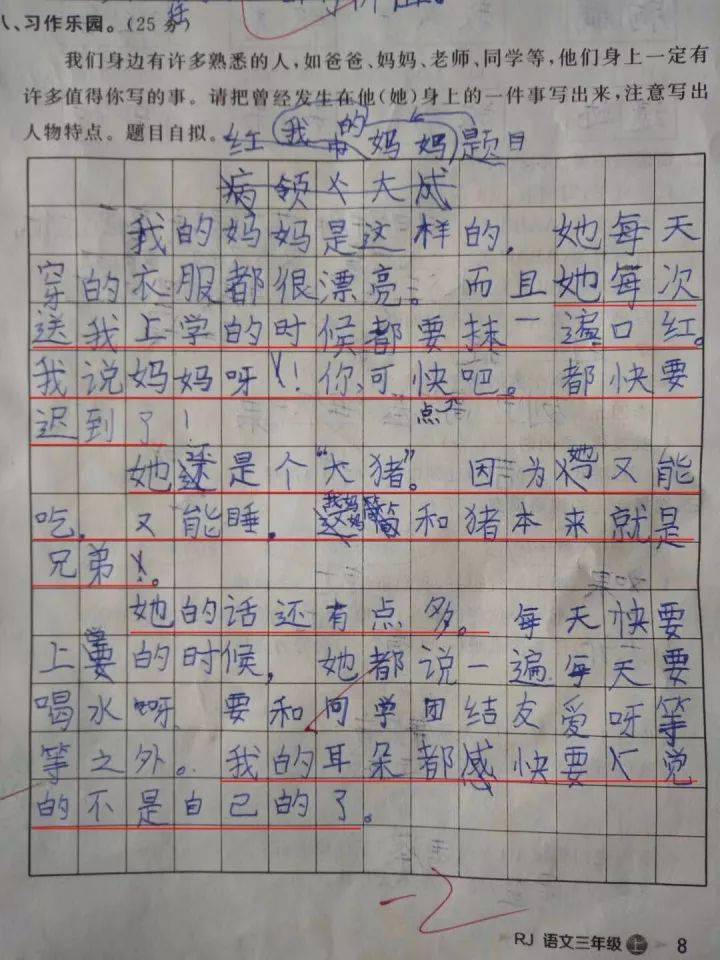 八、习作乐园。(25分)
我们身边有许多熟悉的人,如爸爸、妈妈、老师、同学等,他们身上一定有
许多值得你写的事。请把曾经发生在他(她)身上的一件事写出来,注意写出
人物特点。题目自拟。
我的妈妈 题目
病领人大成
我的妈妈是这样的，她每天
穿的衣服都很漂亮。而且她每次
送我上学的时候都要抹一遍口红。
我说妈妈呀！你可快点吧。都快要
迟到了！
她还是个“大猪”。因为她又能
吃，又能睡，我妈妈简和猪本来就是
兄弟。
她的话还有点多。每天快要
上学的时候，她都说一遍每天要
喝水呀 要和同学团结友爱呀等
等之外。我的耳朵都感快要觉
的不是自己的了。
-2
RJ 语文三年级 上 8